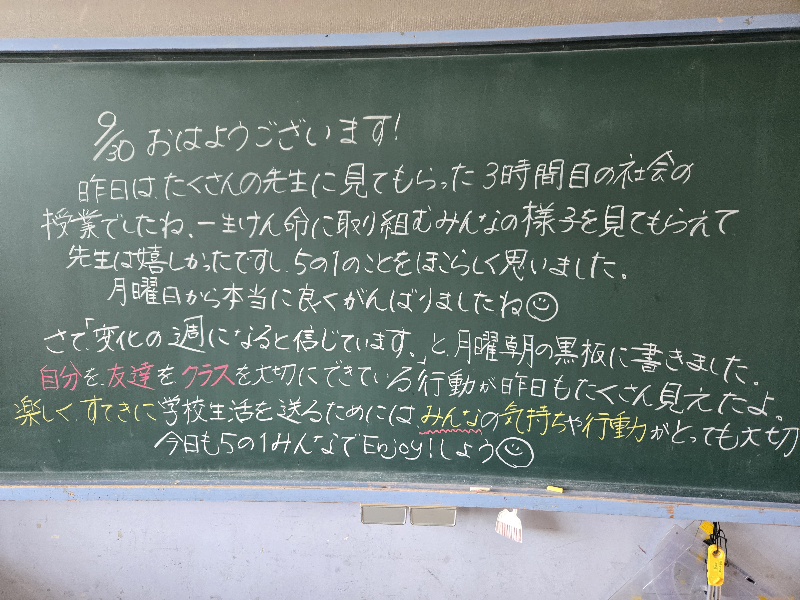 9/30 おはようございます!
昨日は、たくさんの先生に見てもらった3時間目の社会の
授業でしたね。一生けん命に取り組むみんなの様子を見てもらえて
先生は嬉しかったですし、5の1のことをほこらしく思いました。
月曜日から本当に良くがんばりましたね☺
さて、「変化の週になると信じています。」と、月曜朝の黒板に書きました。
自分を、友達を、クラスを大切にできている行動が昨日もたくさん見えたよ。
楽しく すてきに学校生活を送るためには、みんなの気持ちや行動がとっても大切
今日も5の1みんなでEnjoy!しよう☺